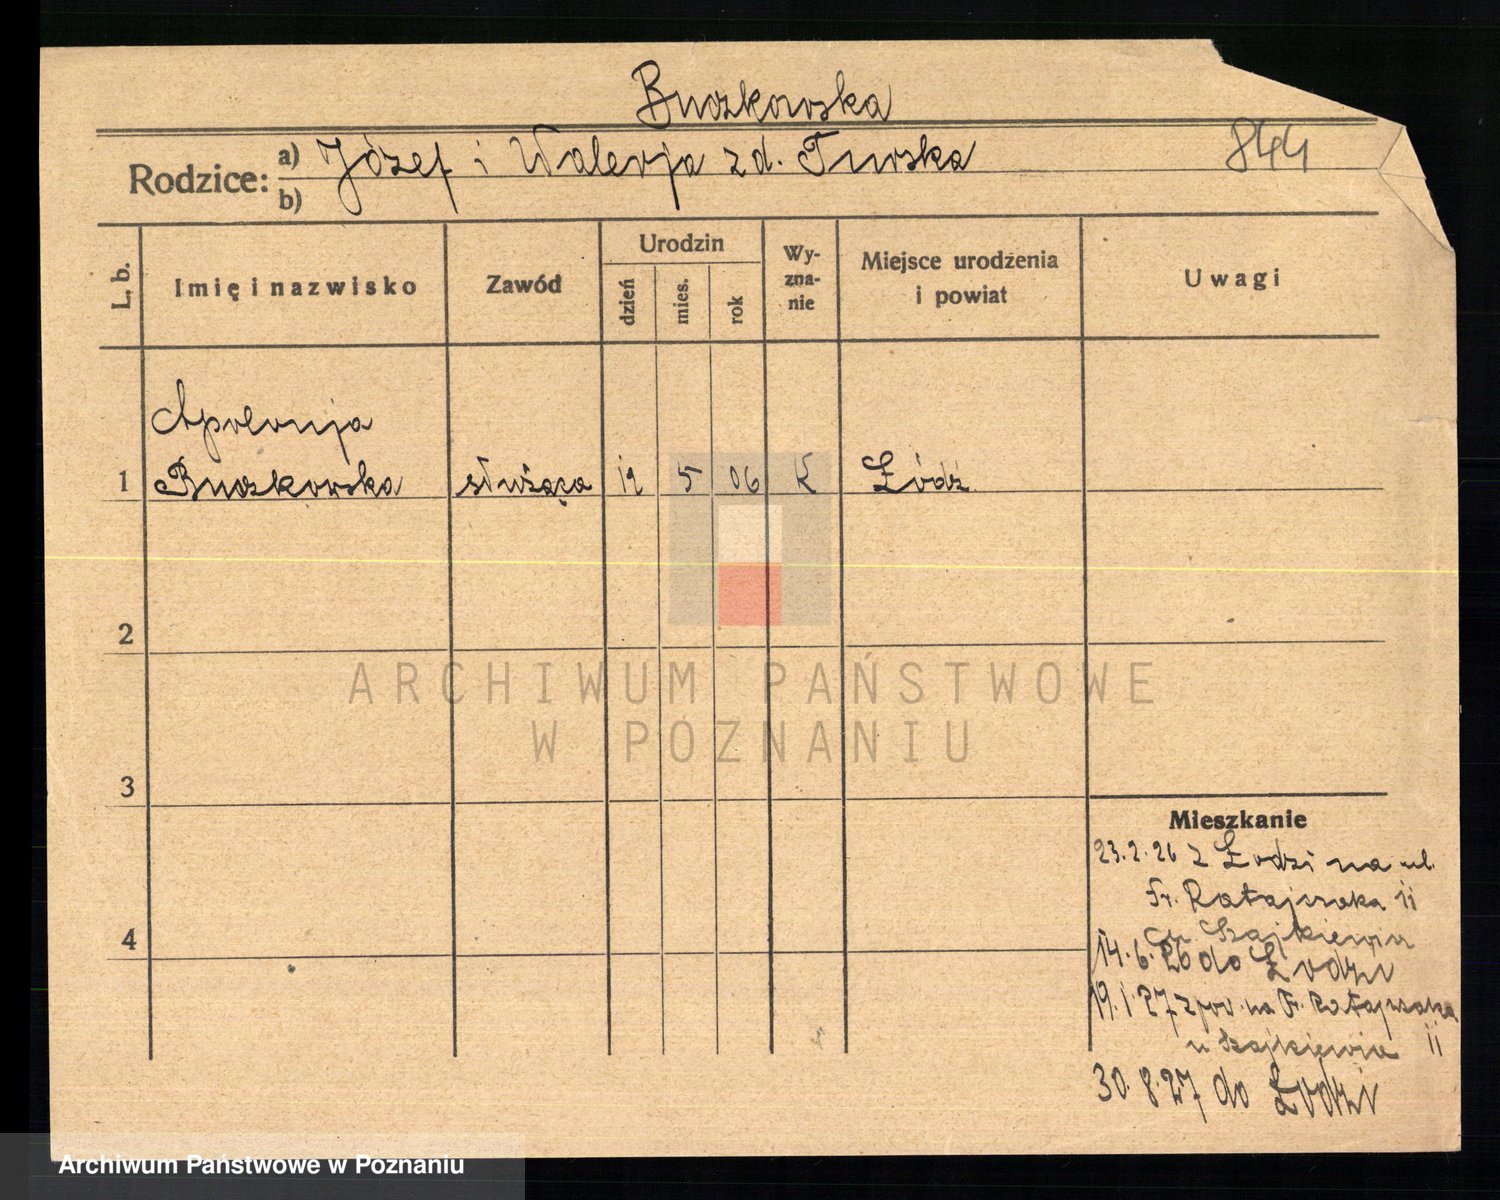 Buczkowska
Rodzice: a) Józef i Walerja zd. Turska 844
b)
L. b. Imię i nazwisko Zawód Urodzin dzień mies. rok Wy-zna-nie Miejsce urodzenia i powiat Uwagi
Apolonja
1 Buczkowska służąca 12 5 06 K Łódź
2
ARCHIWUM PAŃSTWOWE
W POZNANIU
3
Mieszkanie
23.2.26 z Łodzi na ul.
Fr. Ratajczaka 11
4
14.6.26 do Łodzi
19.1.27 z pow. na Fr. Ratajczaka
u 11
30.8.27 do Łodzi
Archiwum Państwowe w Poznaniu